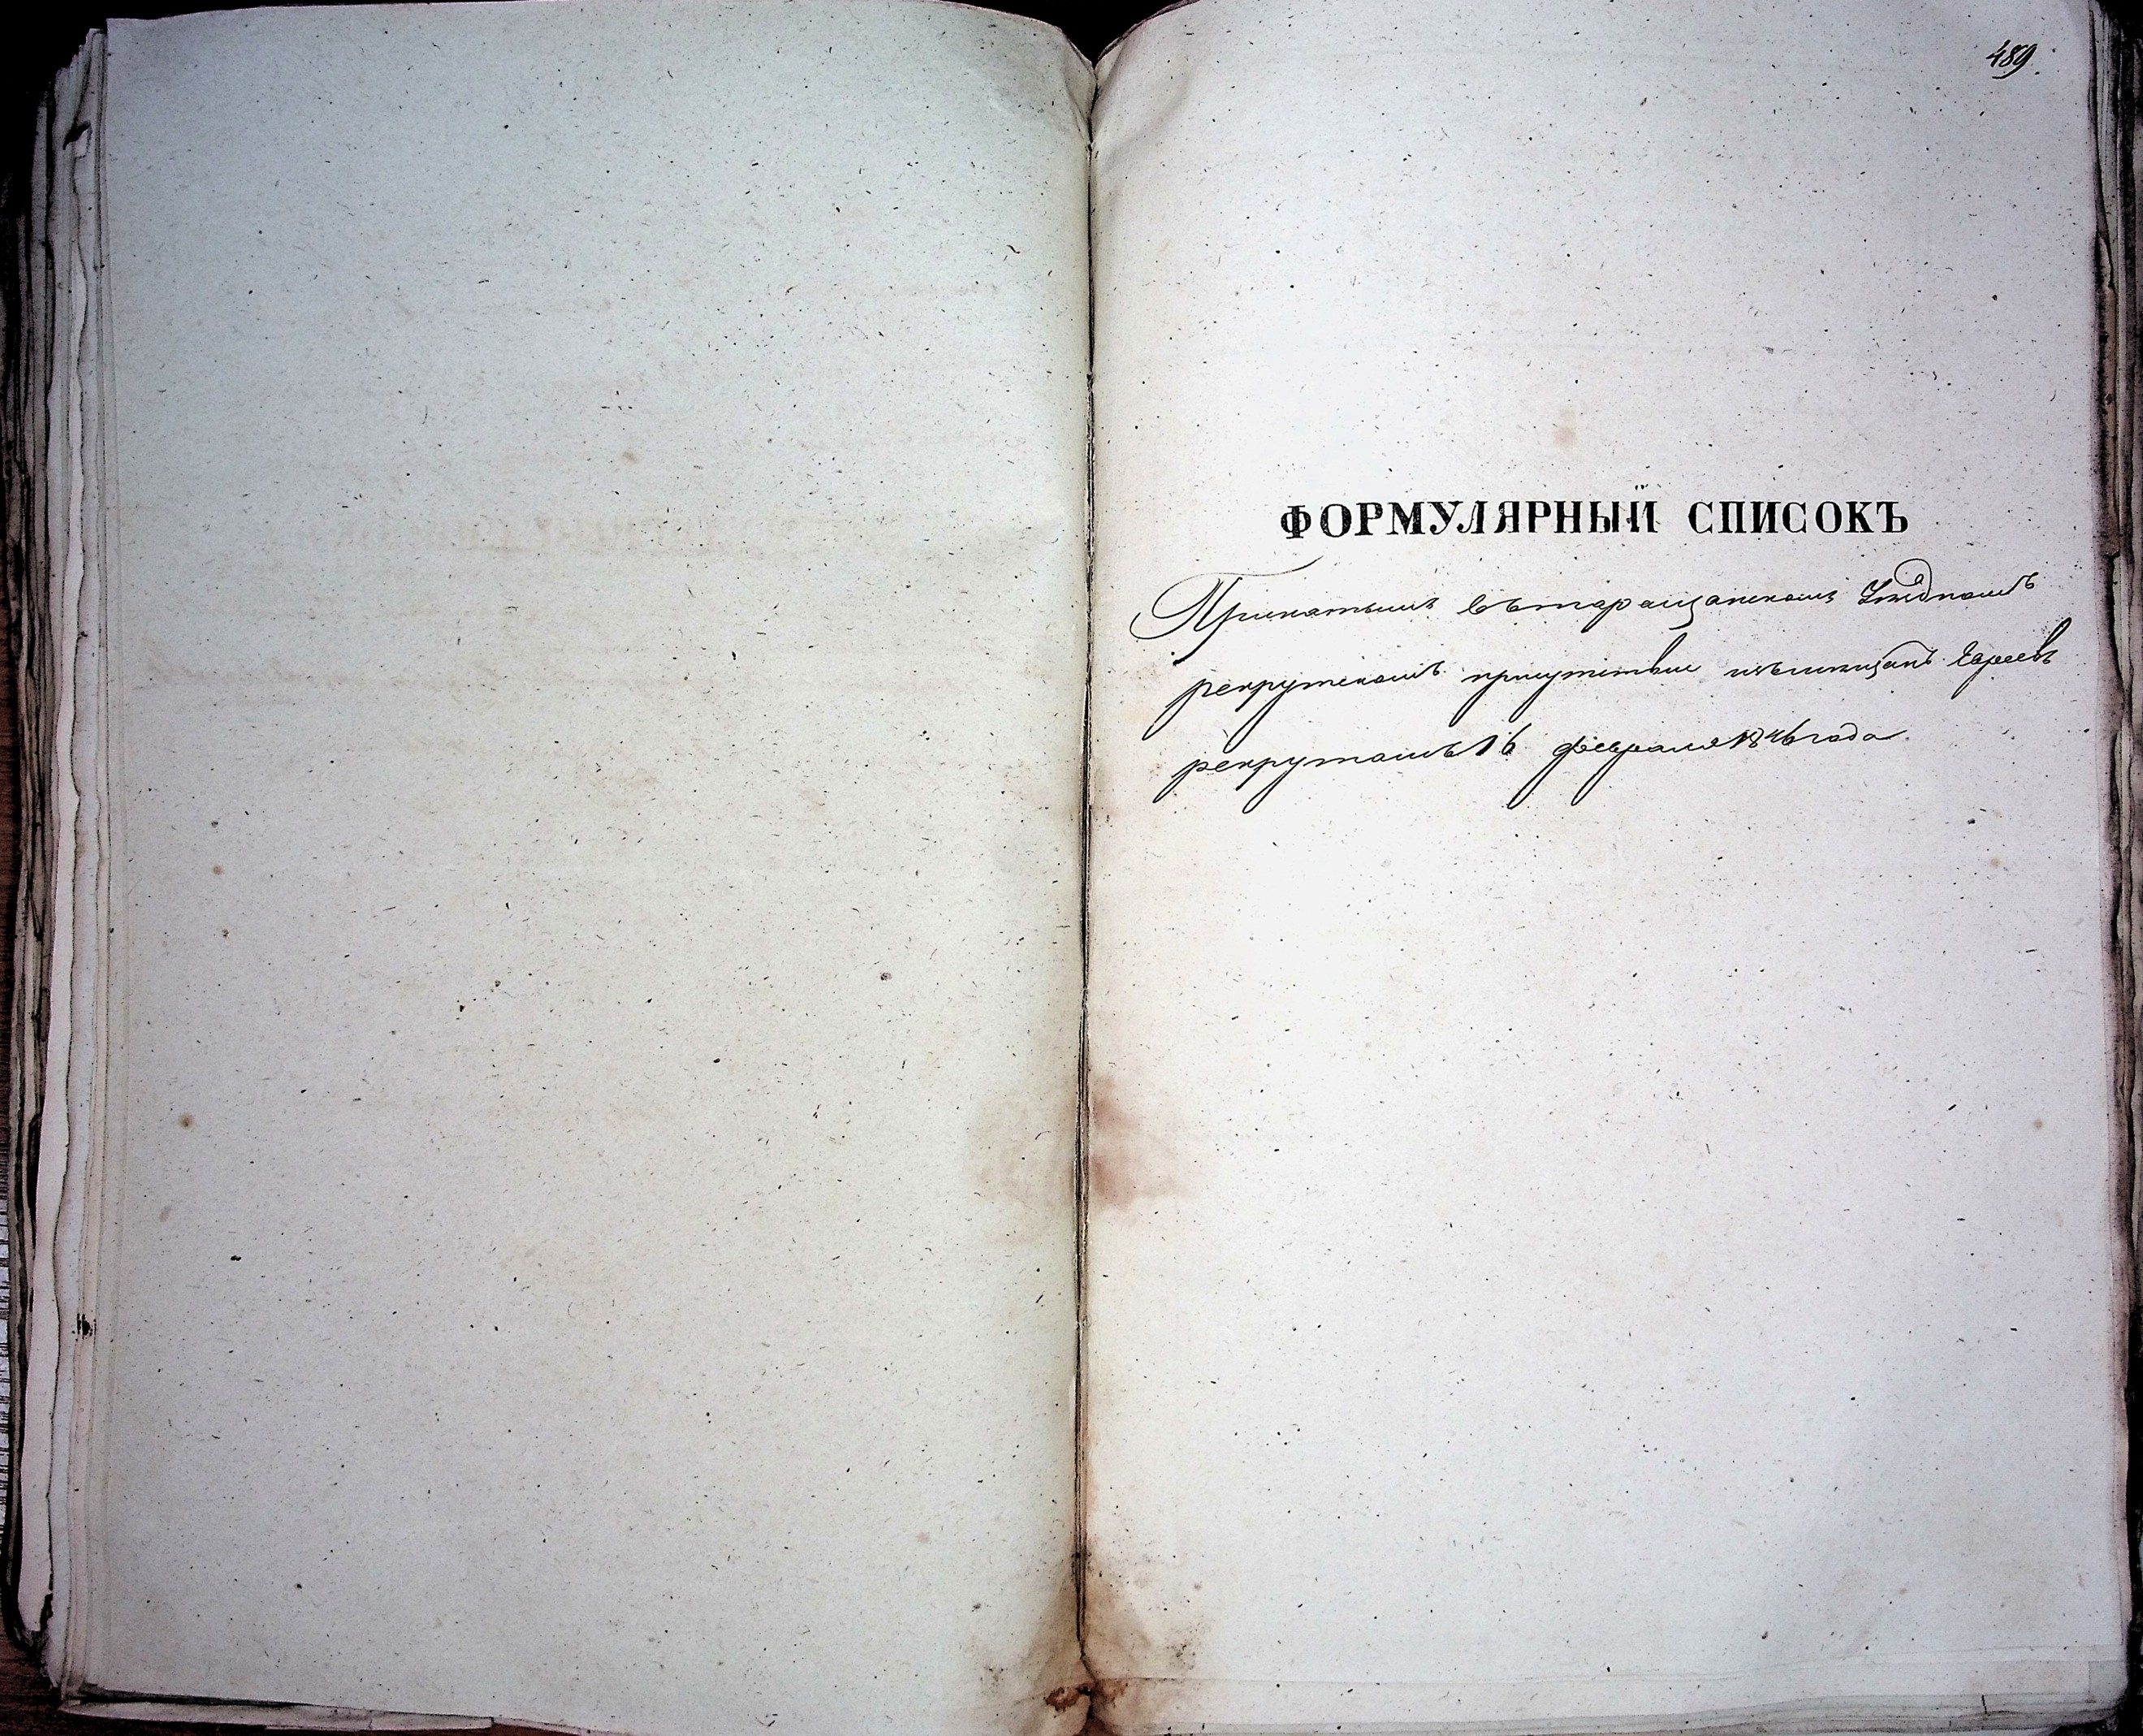 489.
ФОРМУЛЯРНЫЙ СПИСОКЪ
Принятымъ въ таращанскомъ Уѣздномъ
рекрутскомъ присутствіи изъ мѣщанъ Евреевъ
рекрутамъ 16 февраля 1846 года.